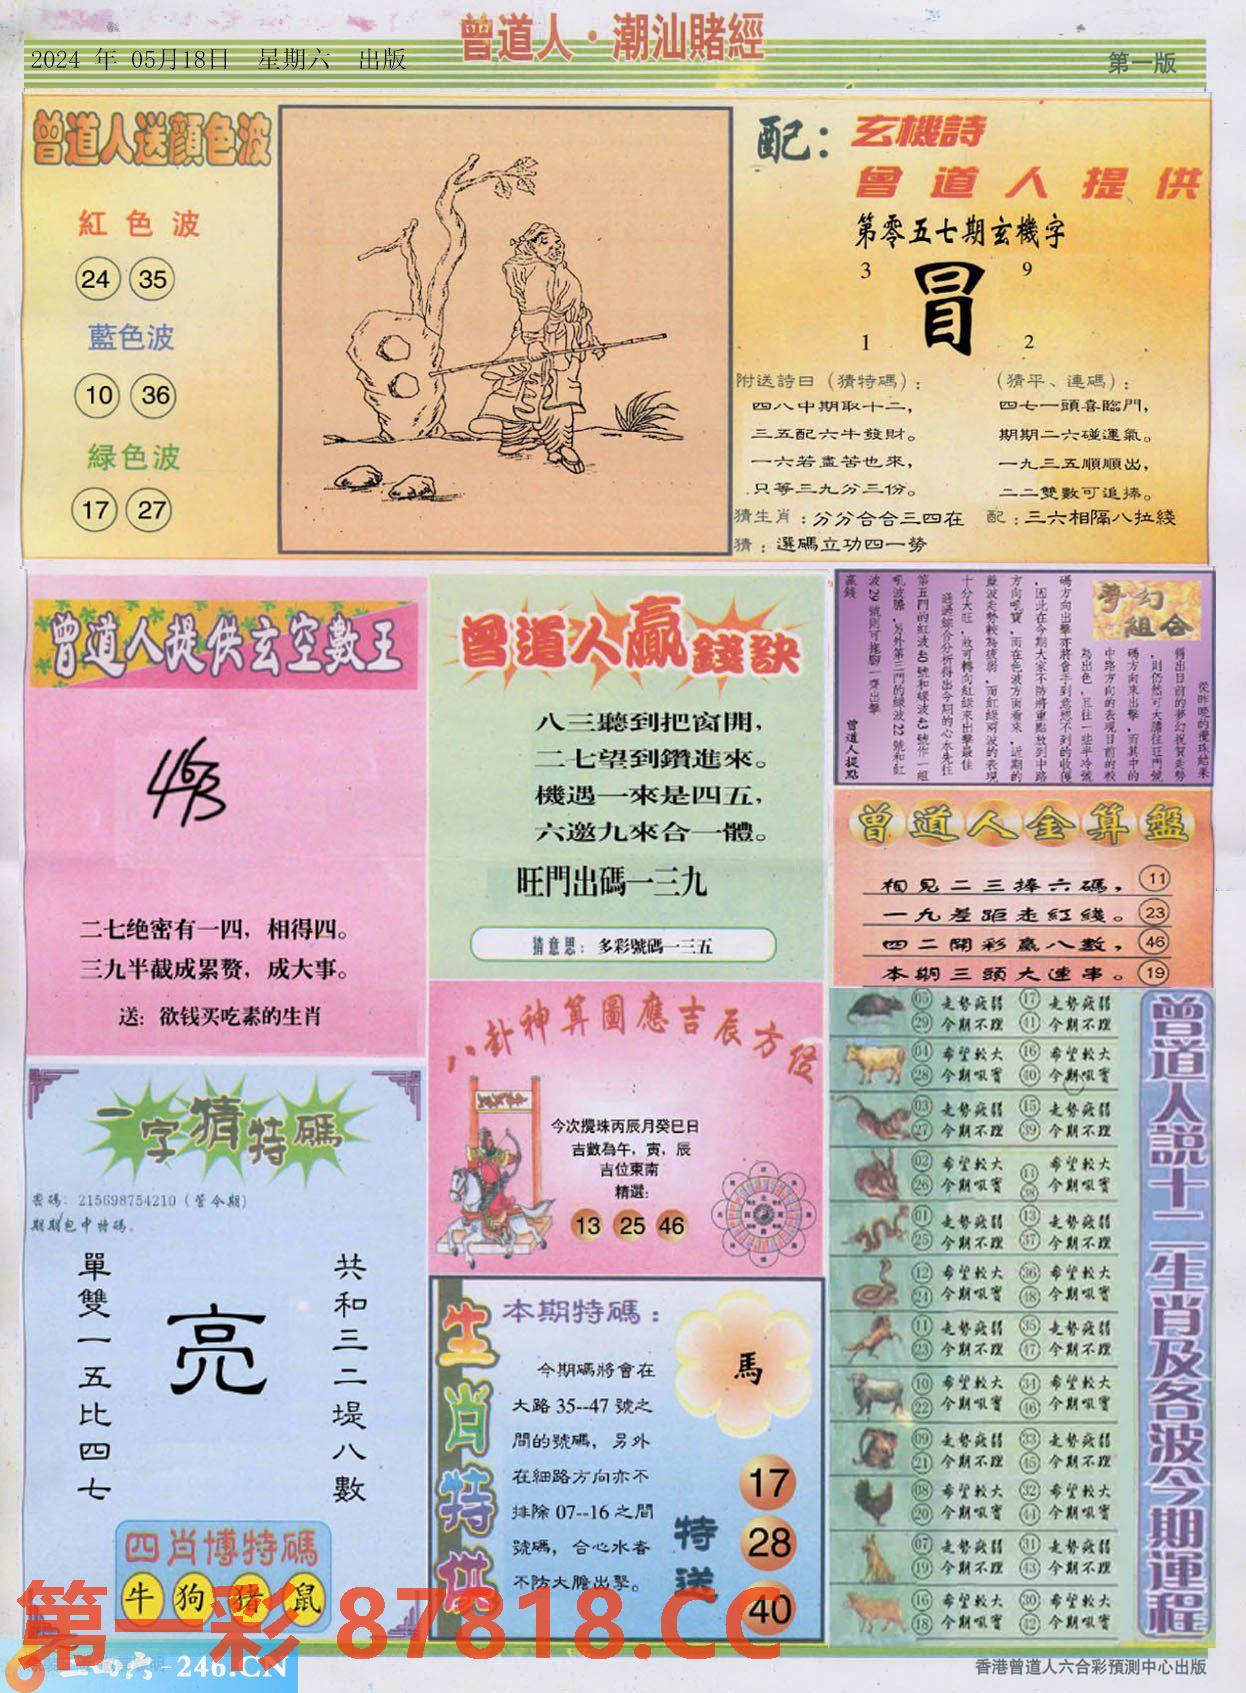 曾道人·潮汕賭經
2024 年 05月18日 星期六 出版
第一版
曾道人送顏色波
紅色波
24 35
藍色波
10 36
綠色波
17 27
配：玄機詩
曾道人提供
第零五七期玄機字
3 9
冒
1 2
附送詩曰（猜特碼）：
四八中期取十二，
三五配六牛發財。
一六若盡苦也來，
只等三九分三份。
（猜平、連碼）：
四七一頭喜臨門，
期期二六碰運氣。
一九三五順順出，
二二雙數可追捧。
猜生肖：分分合合三四在
配：三六相隔八拉綫
猜：選碼立功四一勞
曾道人提供玄空數王
463
二七绝密有一四，相得四。
三九半截成累赘，成大事。
送：欲钱买吃素的生肖
曾道人贏錢訣
八三聽到把窗開，
二七望到鑽進來。
機遇一來是四五，
六邀九來合一體。
旺門出碼一三九
猜意思：多彩號碼一三五
夢幻
組合
從昨晚的攪珠結果
得出目前的夢幻祝賀走勢
，則仍然可大膽往旺門號
碼方向來出擊，而其中的
中路方向的表現目前的較
為出色，且往一些半冷號
碼方向出擊亦將會手到意想不到的收獲
，因此在今期大家不防將重點放到中路
方向吼寶，而在色波方面看來，近期的
藍波走勢較為疲弱，而紅綠兩波的表現
十分大旺，故可轉向紅綠來出擊最佳
通過綜合分析得出今期的心水先往
第五門的紅波40號和綠波43號作一組
吼波膽，另外第三門的綠波22號和紅
波29號則可拖腳一齊出擊
贏錢
曾道人提點
曾道人金算盤
相見二三捧六碼， 11
一九差距走紅綫。 23
四二開彩贏八數， 46
本期三頭大連串。 19
一字猜特碼
密碼: 215698754210（管今期）
期期包中特碼。
單雙一五比四七
亮
共和三二堤八數
四肖博特碼
牛 狗 猪 鼠
八卦神算圖應吉辰方位
今次攪珠丙辰月癸巳日
吉數為午，寅，辰
吉位東南
精選:
13 25 46
生肖特供
本期特碼：
今期碼將會在
大路 35--47 號之
間的號碼，另外
在細路方向亦不
排除 07--16 之間
號碼，合心水者
不防大膽出擊。
馬
特送
17
28
40
曾道人説十二生肖及各波今期運程
05 走勢疲弱 17 走勢疲弱
29 今期不理 41 今期不理
04 希望較大 16 希望較大
28 今期吼實 40 今期吼實
03 走勢疲弱 15 走勢疲弱
27 今期不理 39 今期不理
02 希望較大 14 希望較大
26 今期吼實 38 今期吼實
01 走勢疲弱 13 走勢疲弱
25 今期不理 37 今期不理
12 希望較大 36 希望較大
24 今期吼實 48 今期吼實
11 走勢疲弱 35 走勢疲弱
23 今期不理 47 今期不理
10 希望較大 34 希望較大
22 今期吼實 46 今期吼實
09 走勢疲弱 33 走勢疲弱
21 今期不理 45 今期不理
08 希望較大 32 希望較大
20 今期吼實 44 今期吼實
07 走勢疲弱 31 走勢疲弱
19 今期不理 43 今期不理
16 希望較大 30 希望較大
18 今期吼實 42 今期吼實
第一彩 87818.CC
二四六-246.CN
香港曾道人六合彩預測中心出版